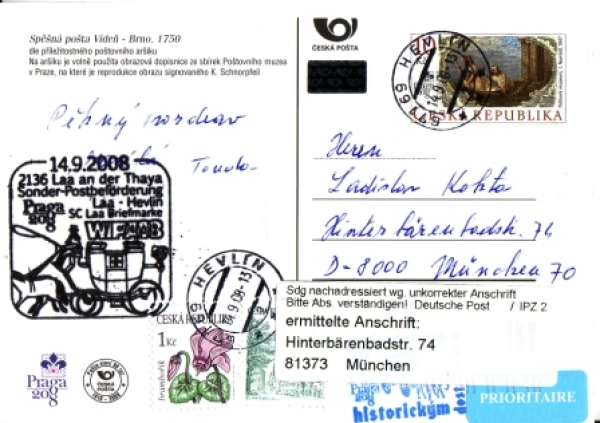 Spěšná pošta Vídeň - Brno, 1750
dle příležitostného poštovního aršíku
Na aršíku je volně použita obrazová dopisnice ze sbírek Poštovního muzea
v Praze, na které je reprodukce obrazu signovaného K. Schnorpfeil
ČESKÁ POŠTA
ČESKÁ REPUBLIKA
67169 HEVLÍN
14.9.08-13
Pěkný pozdrav
14.9.2008
2136 Laa an der Thaya
Sonder-Postbeförderung
Laa - Hevlín
SC Laa Briefmarke
Praga
2008
WIPA08
Herrn
Ladislav Kokta
Hinterbärenbadstr. 74
D-8000 München 70
HEVLÍN
14.9.08-13
ČESKÁ REPUBLIKA
1 Kč
brambořík
Sdg nachadressiert wg. unkorrekter Anschrift
Bitte Abs. verständigen! Deutsche Post / IPZ 2
ermittelte Anschrift:
Hinterbärenbadstr. 74
81373 München
Praga
2008
ČESKÁ POŠTA
1918 - 2008
historickým
PRIORITAIRE